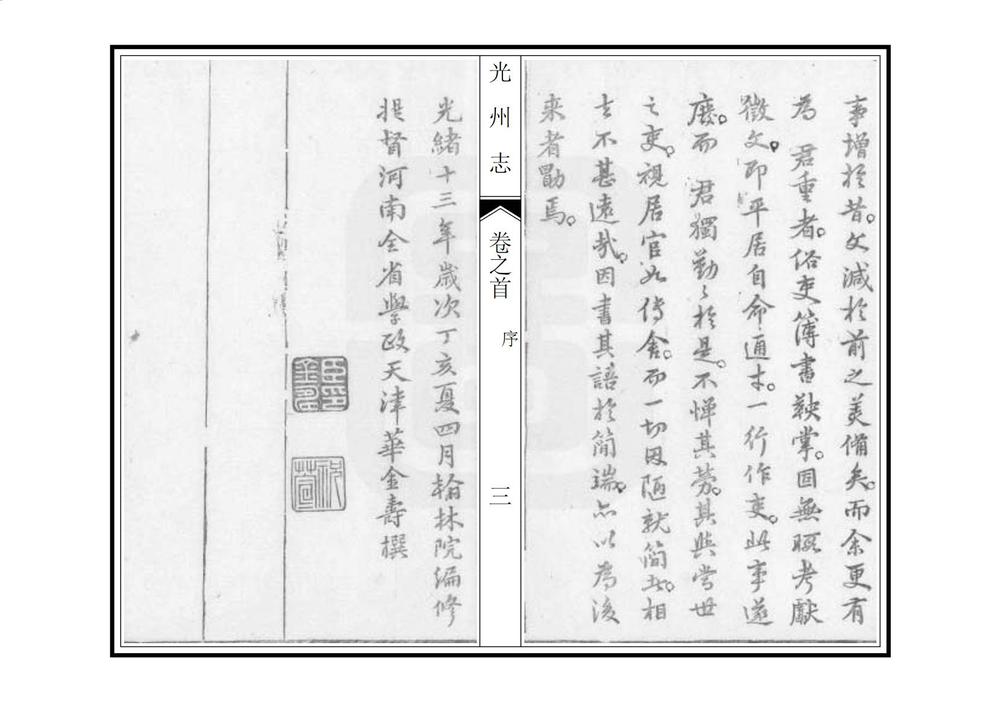 事增於昔。文減於前之美備矣。而余更有
為　君重者。俗吏簿書鞅掌。固無暇考獻
徵文。即平居自命通才。一行作吏。此事遂
廢。而　君獨勤勤於是。不憚其勞。其與當世
之吏。視居官如傳舍。而一切因陋就簡者。相
去不甚遠哉。因書其語於簡端。亦以為後
來者勖焉。
光州志
卷之首
序
三
光緒十三年歲次丁亥夏四月翰林院編修
提督河南全省學政天津華金壽撰